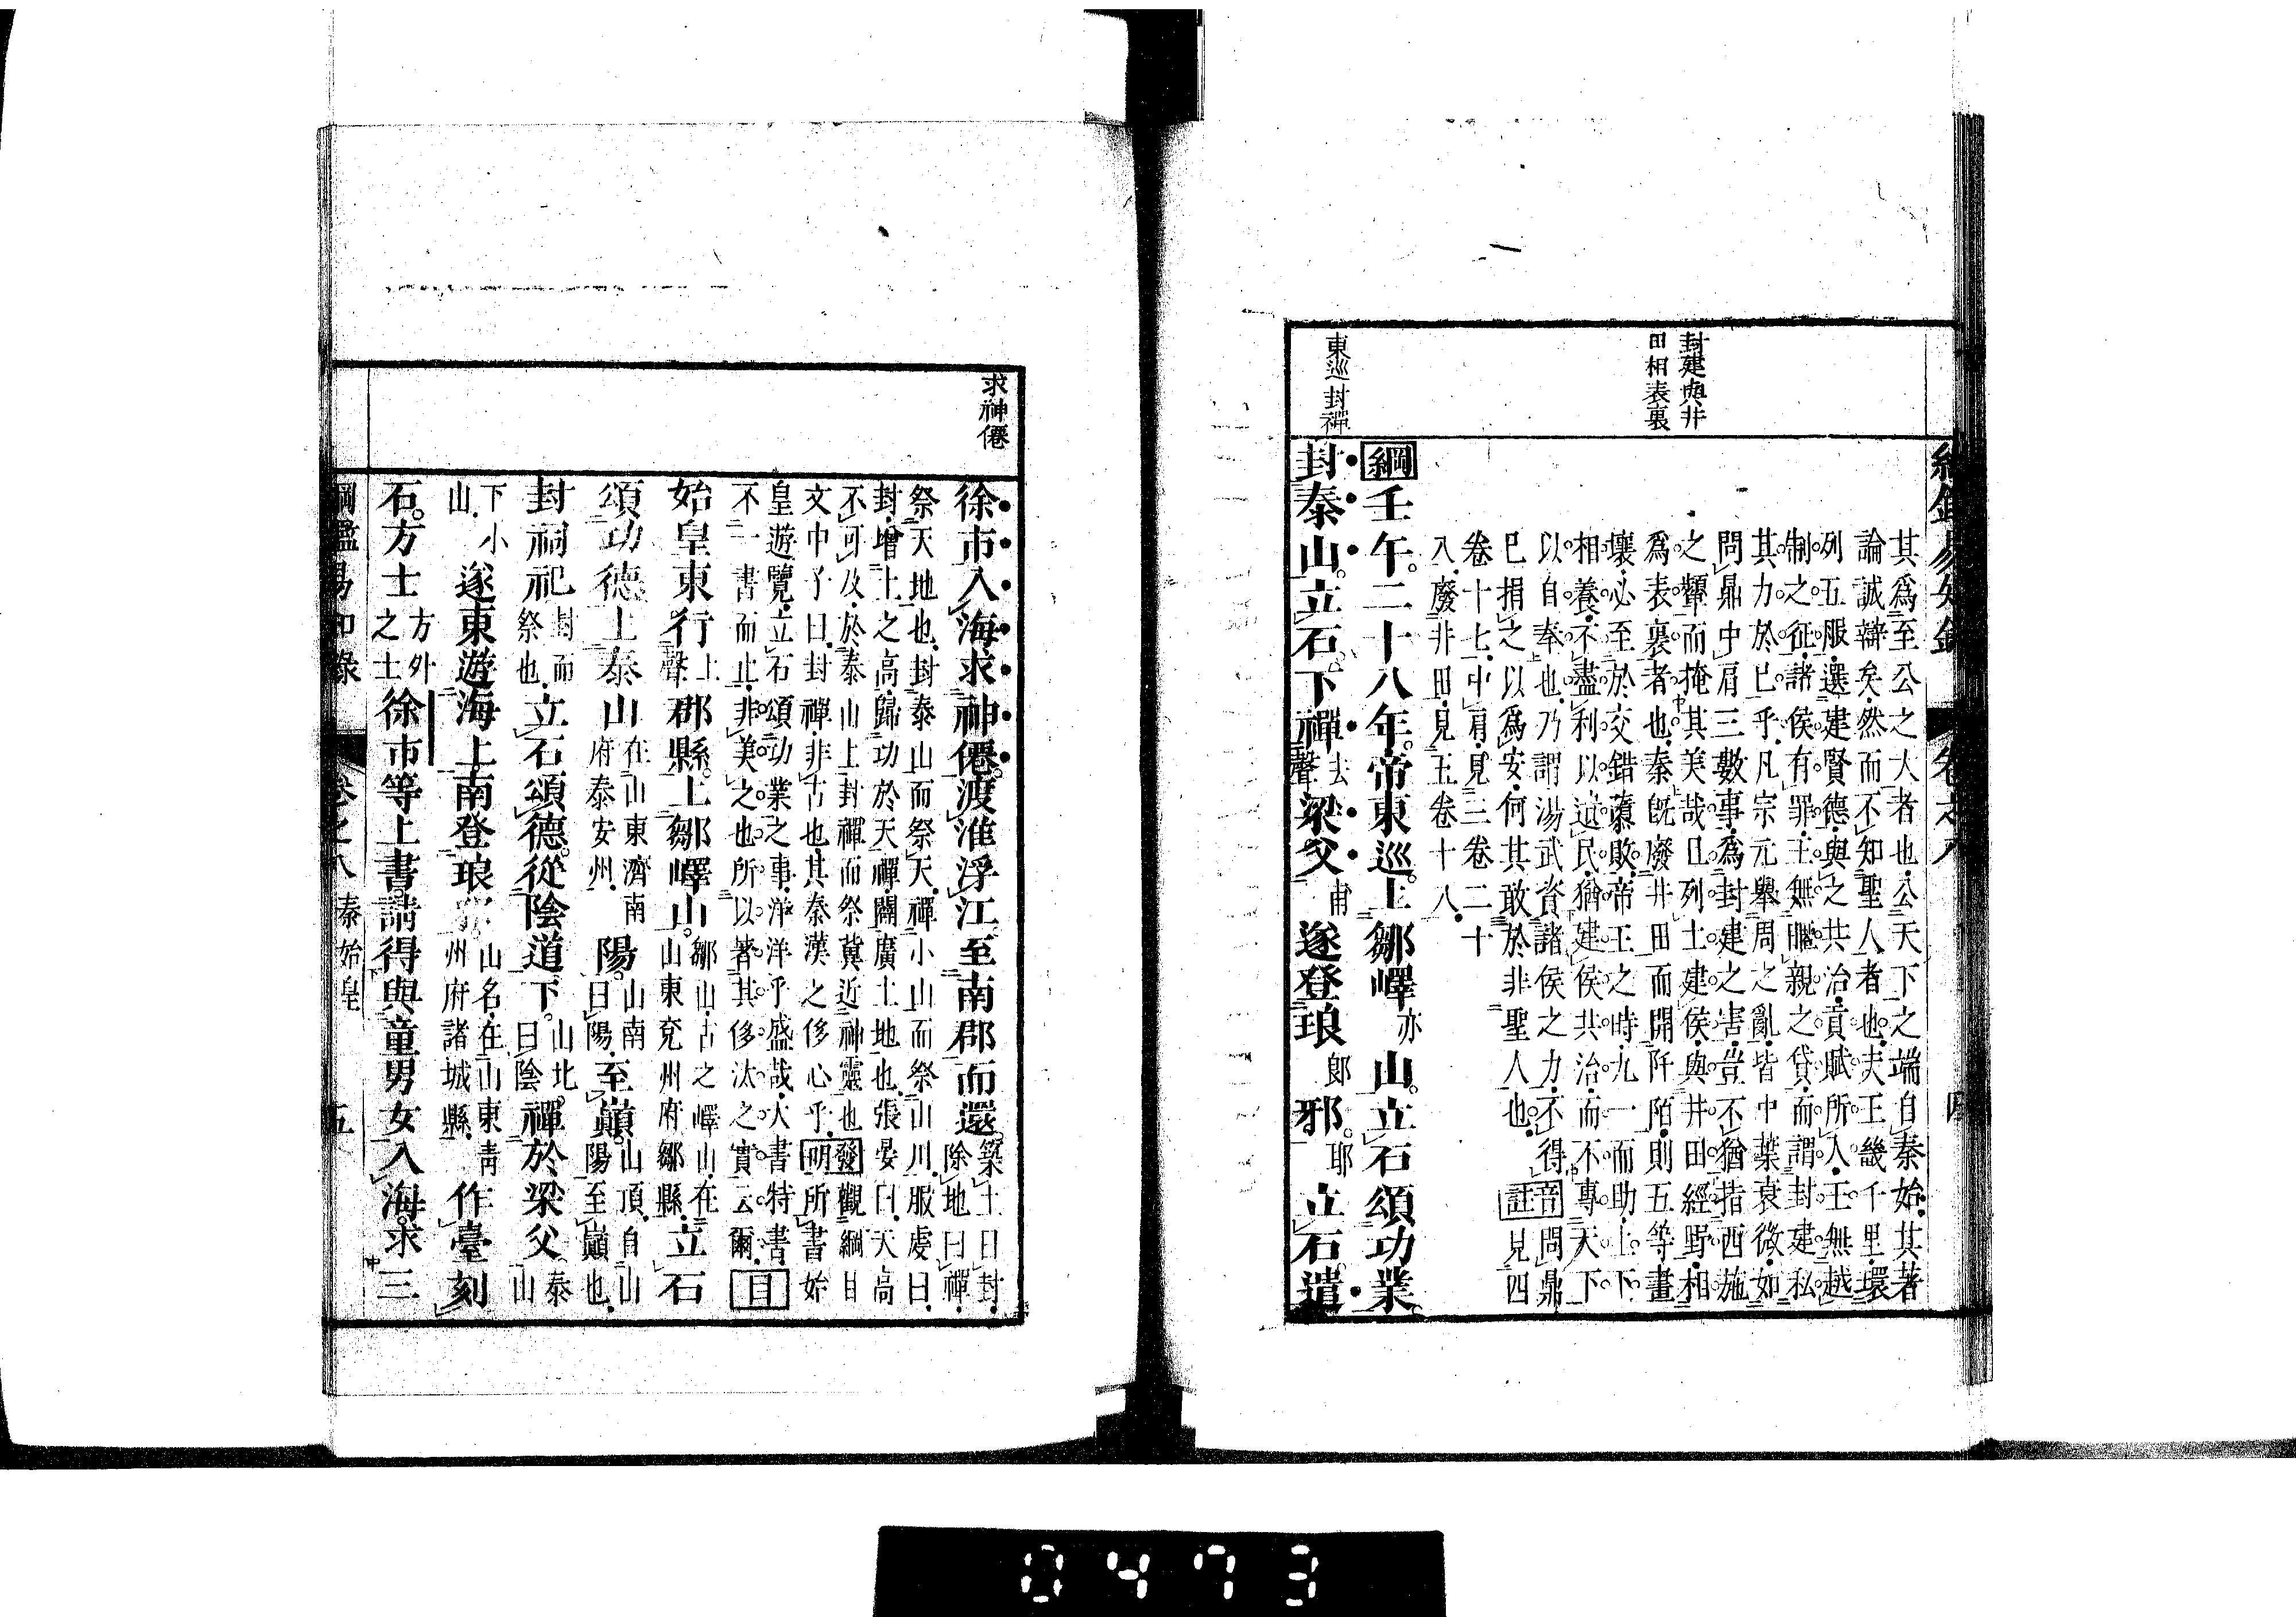 封建與井
田相表裏
東巡封禪
其爲至公之大者也公天下之端自秦始其著
論誠辯矣然而不知聖人者也夫王畿千里環
列五服選建賢德與之共治貢賦所入王無越
制之征諸侯有罪王無曬親之貸而謂封建私
其力於己乎凡宗元舉周之亂皆中葉衰微如
問鼎中肩三數事爲封建之害豈不猶指西施
之顰而掩其美哉且列土建侯與井田經野相
爲表裏者也秦旣廢井田而開阡陌則五等畫
壤必至於交錯隳敗帝王之時九一而助上下
相養不盡利以遺民猶建侯共治而不專天下
以自奉也乃謂湯武資諸侯之力不得音問鼎
已捐之以爲安何其敢於非聖人也註見四
卷十七中肩見三卷二十
八廢井田見五卷十八
綱壬午二十八年帝東巡上鄒嶧亦山立石頌功業
封泰山立石下禪去聲梁父甫遂登琅郎邪耶立石遣
求神僊
徐巿入海求神僊渡淮浮江至南郡而還築土曰封除地曰禪
祭天地也封泰山而祭天禪小山而祭山川服虔曰
封增土之高歸功於天禪闢廣土地也張晏曰天高
不可及於泰山上封禪而祭冀近神靈也發觀綱目
文中子曰封禪非古也其秦漢之侈心乎明所書始
皇遊覽立石頌功業之事洋洋乎盛哉大書特書
不一書而止非美之也所以著其侈汰之實云爾目
始皇東行上聲郡縣上鄒嶧山鄒山古之嶧山在山東兖州府鄒縣立石
頌功德上泰山在山東濟南府泰安州陽山南曰陽至巔山頂自山陽至巔也
封祠祀封而祭也立石頌德從陰道下山北曰陰禪於梁父泰山
下小山遂東遊海上南登琅邪山名在山東青州府諸城縣作臺刻
石方士方外之士徐巿等上書請得與童男女入海求三
綱鑑易知錄 卷之八 秦始皇 五
0473